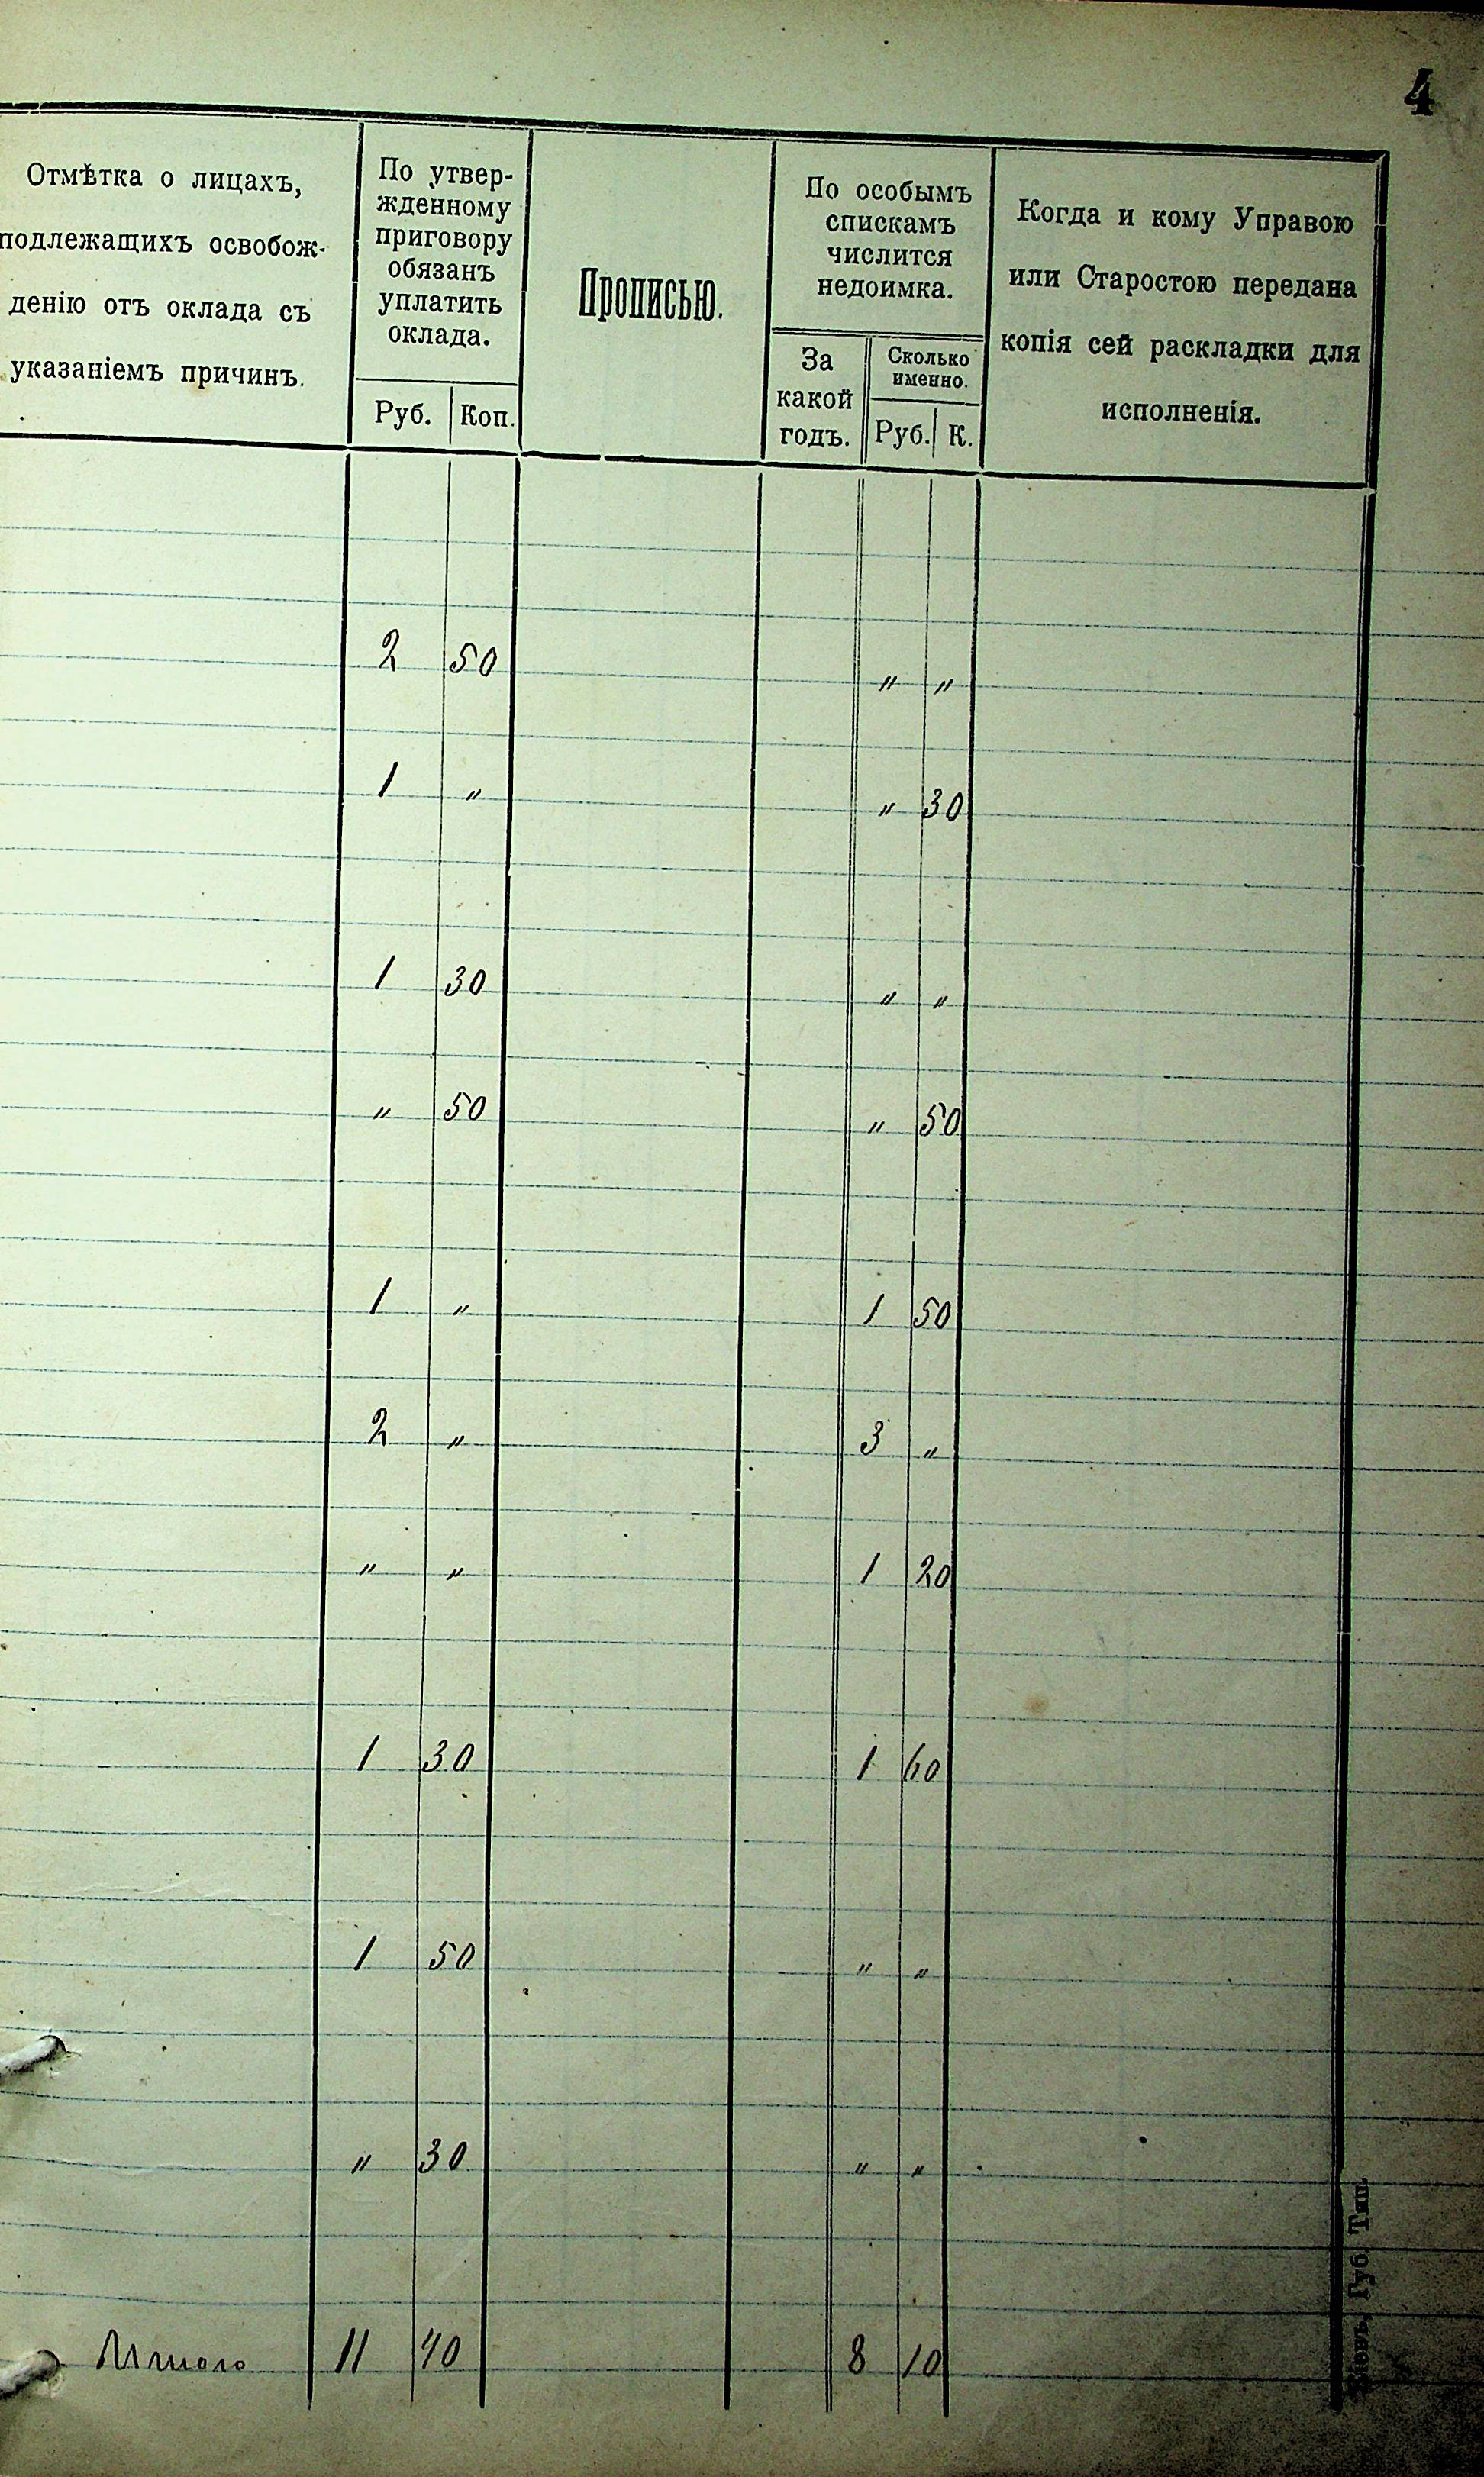 4
Отмѣтка о лицахъ,
подлежащихъ освобож-
денію отъ оклада съ
указаніемъ причинъ.
По утвер-
жденному
приговору
обязанъ
уплатить
оклада.
Руб. Коп.
Прописью.
По особымъ
спискамъ
числится
недоимка.
За
какой
годъ.
Сколько
именно.
Руб. К.
Когда и кому Управою
или Старостою передана
копія сей раскладки для
исполненія.
2 50 " "
1 " " 30
1 30 " "
" 50 " 50
1 " 1 50
2 " 3 "
" " 1 20
1 30 1 60
1 50 " "
" 30 " "
Итого 11 40 8 10
Губ. Тип.